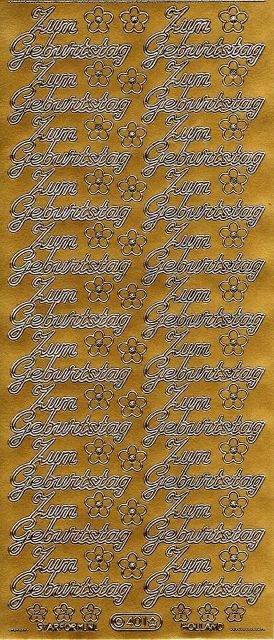 Zum Zum
Geburtstag Geburtstag
Zum Zum
Geburtstag Geburtstag
Zum Zum
Geburtstag Geburtstag
Zum Zum
Geburtstag Geburtstag
Zum Zum
Geburtstag Geburtstag
Zum Zum
Geburtstag Geburtstag
Zum Zum
Geburtstag Geburtstag
Zum Zum
Geburtstag Geburtstag
Zum Zum
Geburtstag Geburtstag
Zum Zum
Geburtstag Geburtstag
Zum Zum
Geburtstag Geburtstag
STARFORM.NL HOLLAND